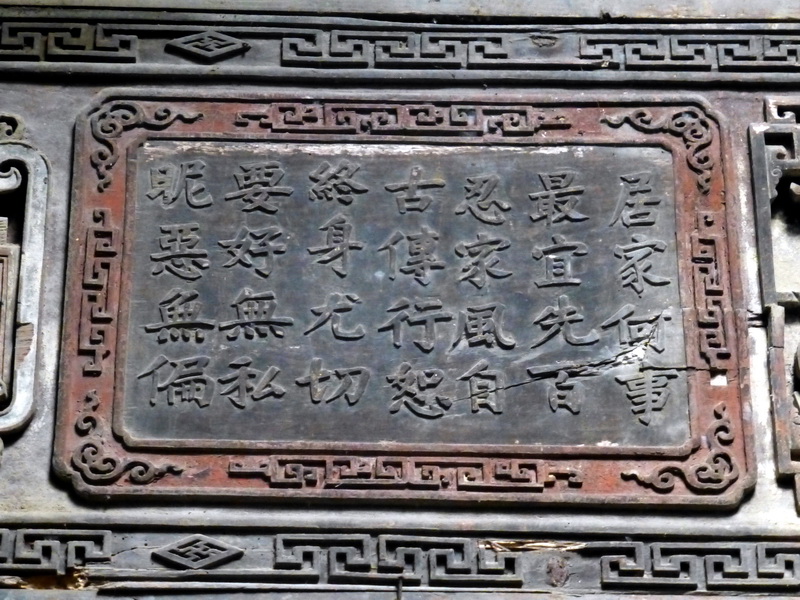 居家何事
最宜先百
忍家風自
古傳行恕
終身尤切
要好無私
昵惡無偏